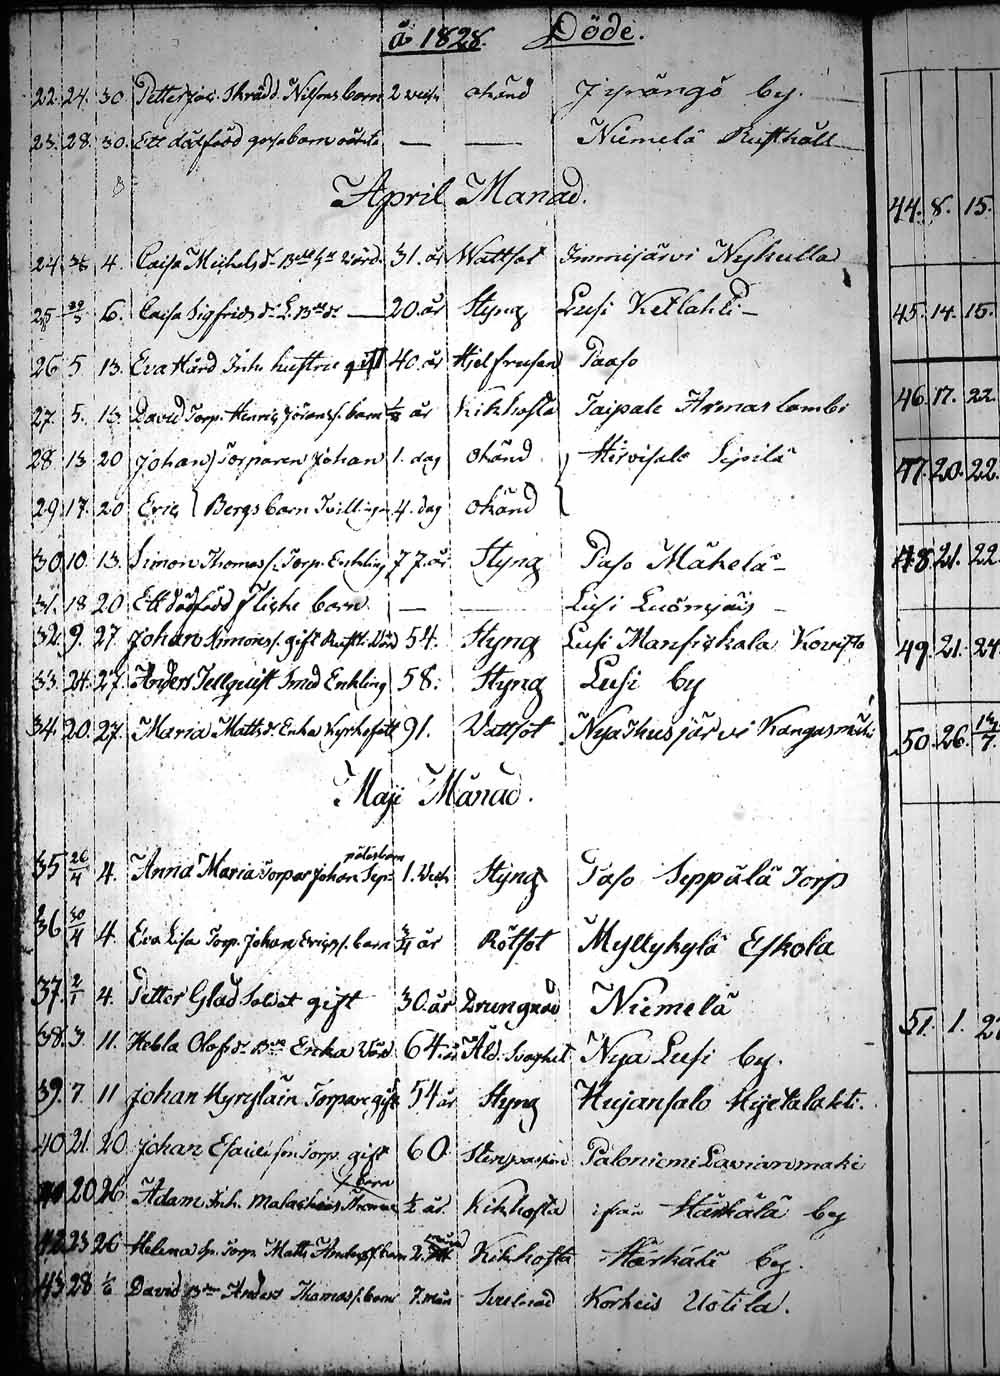 å 1828. Döde.
22. 24. 30 Petter Jac. Skrädd. Nilsons barn 2 veck okänd Jyrängö by.
23. 28. 30. Ett dödföd barn — — Niemelä Rusthåll
April Månad.
24 4. Caisa Michelsdr 31. år Wattsot Immijärvi Nykulla
25 30/3 6. Caisa Sigfridsdr — 20. år Styng Lusi Ketlahti —
26 5 13. Eva Hård Inh. hustru gift 40. år Hjelfrusen Paaso
27. 5. 13. David Torp. Henric Jöranss. barn ½ år Kikhosta Taipale Harmaslambi
28 13 20 Johan } Torparen Johan 1. dag okänd } Hirvisalo Sipilä
29. 17. 20 Eric } Bergs barn Tvillingar 4. dag okänd
30. 10. 13. Simon Thomass. Torp. Enkling 77. år Styng Paso Mäkelä —
31. 18 20 Ett dödfödd Flicke barn. — — Lusi
32. 9. 27. Johan Simonss. gift 54. Styng Lusi Mansickala Kovisto
33. 24. 27. Anders Tellquist Smed Enkling 58. Styng Lusi by
34. 20. 27. Maria Mattsdr Enka 91. Vattsot Nya Ihusjärvi Kangasmäki
Maji Månad.
35 26/4 4. Anna Maria Torpar Johan barn 1. Veck Styng Paso Seppälä Torp
36 30/4 4. Eva Lisa Torp. Johan Ericss. barn ¾ år Rötsot Myllykylä Eskola
37. 2/5 4. Petter Glad Soldat gift 30. år Drungnad Niemelä
38. 3 11. Hebla Olofsdr Enka 64. år Åld. Svaghet Nya Lusi by.
39. 7. 11 Johan Hyrylain Torpare gift 54 år Styng Hujansalo Hyetälahti.
40 21. 20 Johan Esaiæ son Torp. gift 60. Stenpassion Paloniemi Lavianmäki
20 26 Adam Inh. Malachias Thomæ barn ½ år Kikhosta ifrån Härkälä by
42 23 26 Helena Torp. Matts Anderss. barn 2. månad Kikhosta Härkälä by.
43 28 1/6 David Anders Thomass. barn 7. mån Svulnad Korkeis Uotila.
44. 8. 15.
45. 14. 15.
46. 17. 22.
47. 20. 22.
48. 21. 22.
49. 21. 24
50. 26. 13/7.
51. 1.